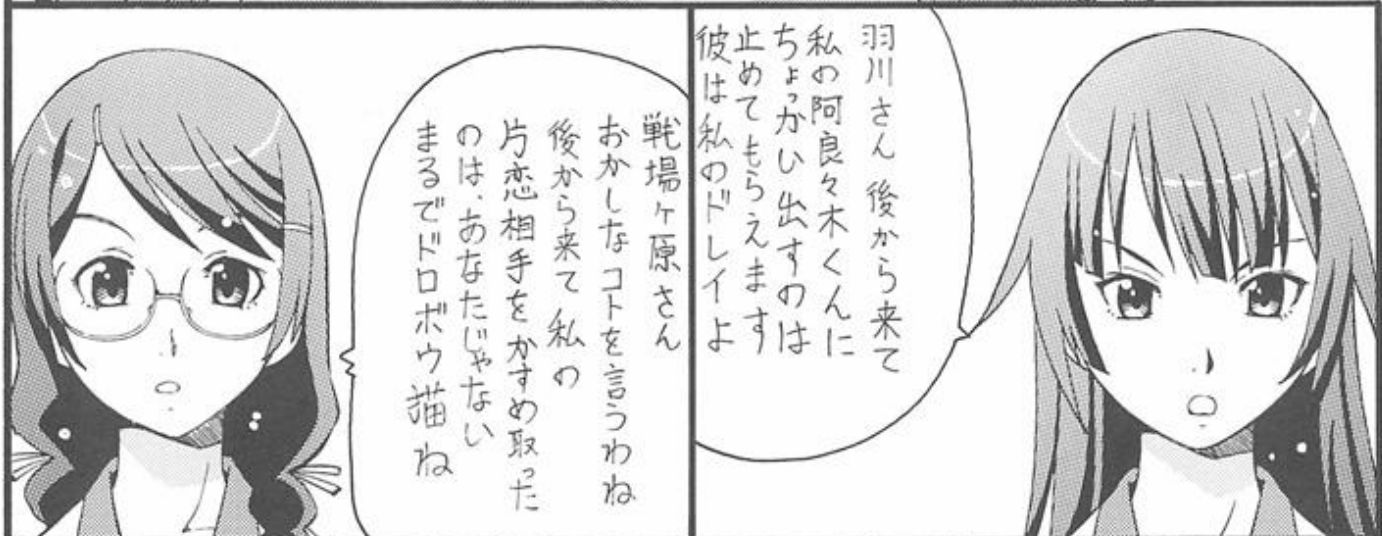 羽川さん 後から来て
私の阿良々木くんに
ちょっかい出すのは
止めてもらえます
彼は私のドレイよ
戦場ヶ原さん
おかしなコトを言うわね
後から来て 私の
片恋相手をかすめ取った
のは、あなたじゃない
まるでドロボウ猫ね